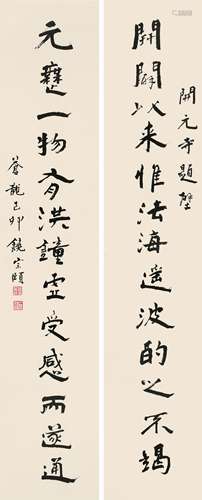 開元寺題壁
開闢以来惟法海遥波酌之不竭
元一物有洪鐘虚受感而遂通
蒼龍己卯饒宗頤